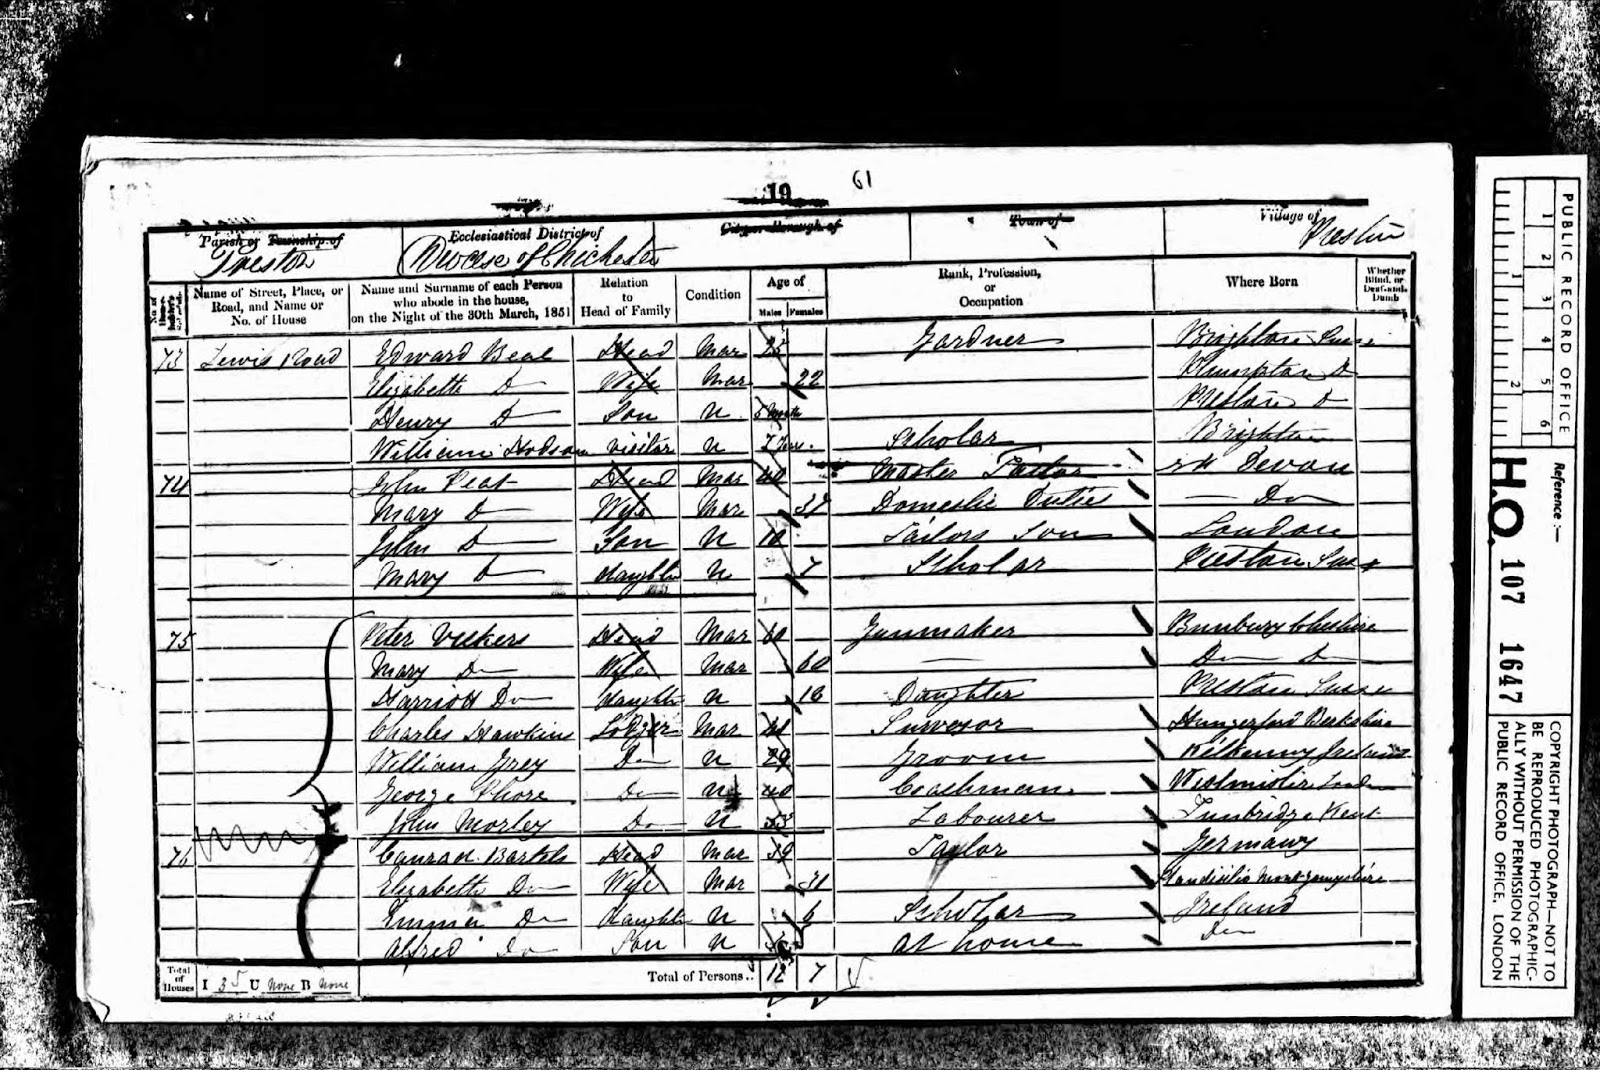 19
61
Parish or Township of
Preston
Ecclesiastical District of
Diocese of Chichester
City or Borough of
Town of
Village of
Preston
Name of Street, Place, or Road, and Name or No. of House
Name and Surname of each Person who abode in the house, on the Night of the 30th March, 1851
Relation to Head of Family
Condition
Age of
Males Females
Rank, Profession, or Occupation
Where Born
Whether Blind, or Deaf-and-Dumb
73 Lewis Road Edward Beal Head Mar Gardner Brighton
Elizabeth Do Wife Mar 22 Plumpton Do
Henry Do Son U 5 Preston Do
William Hodson visitor U 7 Scholar Brighton
74 John Peat Head Mar 40 Master Tailor Devon
Mary Do Wife Mar Domestic Duties Do
John Do Son U 10 Tailors Son London
Mary Do daughter U 7 Scholar Preston
75 Peter Vickers Head Mar Gunmaker Bunbury Cheshire
Mary Do Wife Mar 60 Do Do
Harriott Do daughter U 16 Daughter Preston
Charles Hawkins Lodger Mar 41 Surveyor Hungerford Berkshire
William Grey Do U 29 Groom Kilkenny Ireland
George Do U 40 Coachman Westminster London
John Morley Do U Labourer Tunbridge Kent
76 Conrad Bartels Head Mar 39 Tailor Germany
Elizabeth Do Wife Mar 31 Montgomyshire
Emma Do daughter U 6 Scholar Ireland
Alfred Do Son U at home Do
Total of Houses I 35 U none B none Total of Persons 12 7
PUBLIC RECORD OFFICE
1 2 3 4 5 6
1 2
Reference :-
H.O. 107 1647
COPYRIGHT PHOTOGRAPH—NOT TO BE REPRODUCED PHOTOGRAPHIC-ALLY WITHOUT PERMISSION OF THE PUBLIC RECORD OFFICE, LONDON